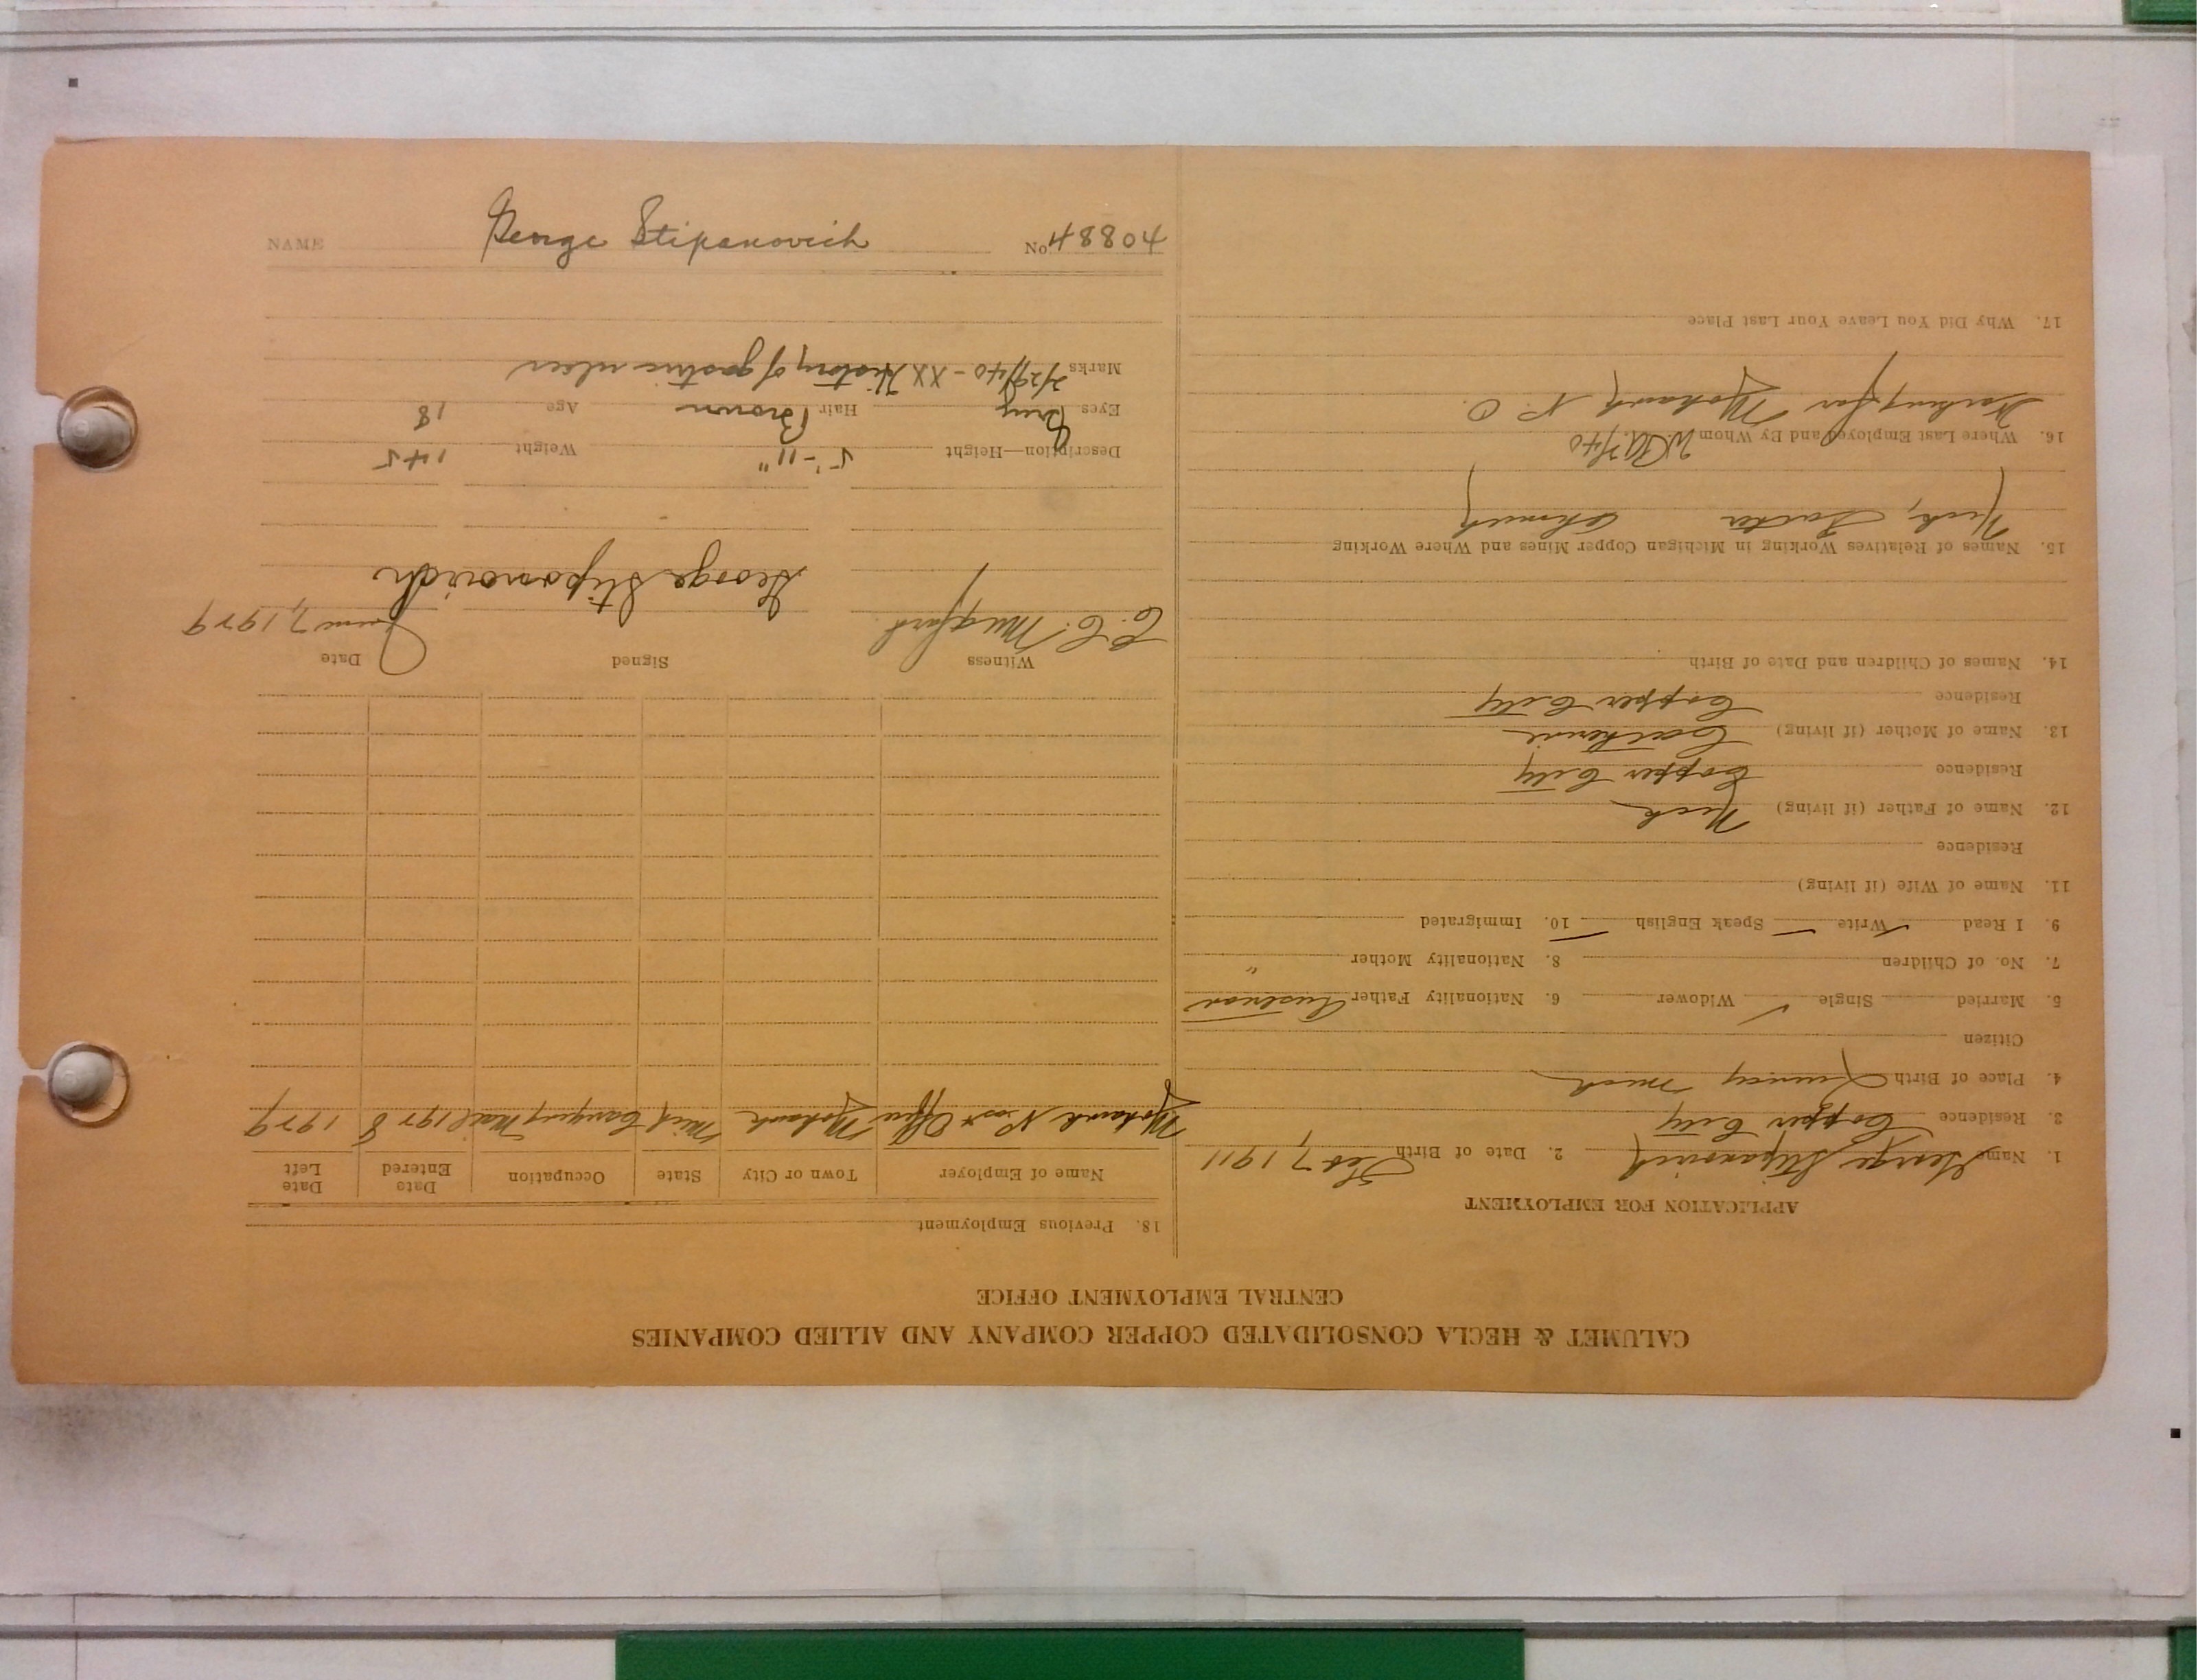 CALUMET & HECLA CONSOLIDATED COPPER COMPANY AND ALLIED COMPANIES
CENTRAL EMPLOYMENT OFFICE
APPLICATION FOR EMPLOYMENT
1. Name George Stipanovich 2. Date of Birth Feb 7, 1911
3. Residence Copper City
4. Place of Birth Mich
Citizen
5. Married Single ✓ Widower 6. Nationality Father Austrian
7. No. of Children 8. Nationality Mother "
9. I Read ✓ Write ✓ Speak English ✓ 10. Immigrated
11. Name of Wife (if living)
Residence
12. Name of Father (if living) Nick
Residence Copper City
13. Name of Mother (if living) Catherine
Residence Copper City
14. Names of Children and Date of Birth
15. Names of Relatives Working in Michigan Copper Mines and Where Working
Nick, Father Ahmeek
16. Where Last Employed and By Whom WPA 2/40
Working for Mohawk P. O.
17. Why Did You Leave Your Last Place
18. Previous Employment
Name of Employer Town or City State Occupation Date Entered Date Left
Mohawk Post Office Mohawk Mich Carrying Mail 1928 1929
Witness Signed Date
C. C. Mugford George Stipanovich June 7, 1929
Description—Height 5'-11" Weight 145
Eyes Grey Hair Brown Age 18
Marks 2/29/40 - XX History of gastric ulcer
NAME George Stipanovich No. 48804